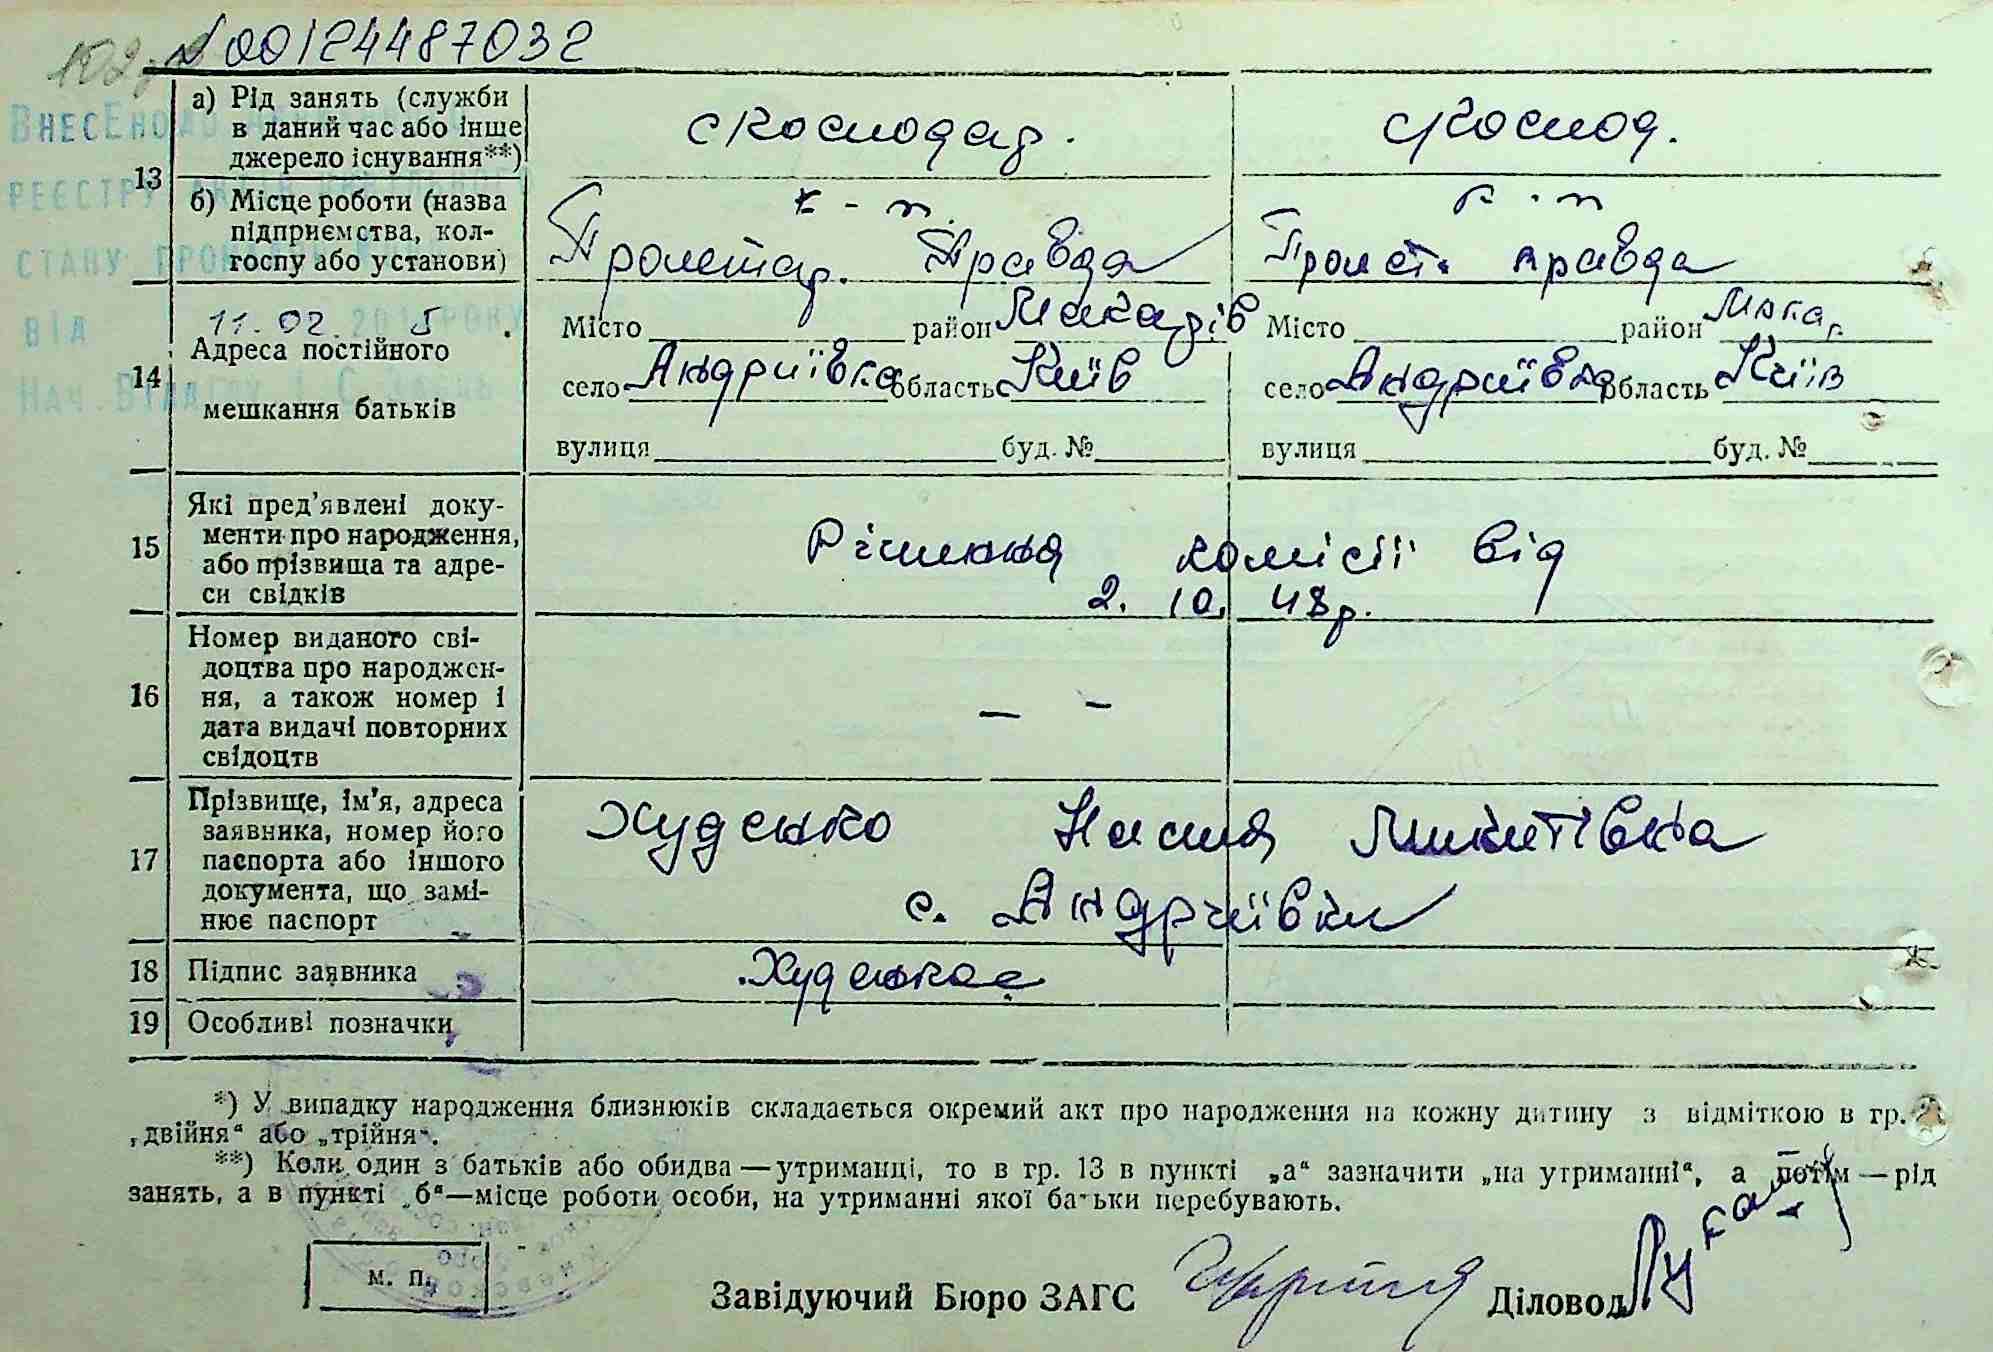 N 00124487032
ВнесЕно до
реєстру актів цивільного
стану про
від 11.02. 2015 року
Нач. Відділу І. С. Заєць
13
а) Рід занять (служби
в даний час або інше
джерело існування**)
с/господар.
с/господ.
б) Місце роботи (назва
підприємства, кол-
госпу або установи)
к-п.
Пролетар. Правда
к-п
Пролет. правда
14
Адреса постійного
мешкання батьків
Місто район Макарів
село Андріївка область Київ
вулиця буд. №
Місто район Мака
село Андріївка область Київ
вулиця буд. №
15
Які пред’явлені доку-
менти про народження,
або прізвища та адре-
си свідків
Рішення комісії від
2. 10. 48 р.
16
Номер виданого сві-
доцтва про народжен-
ня, а також номер і
дата видачі повторних
свідоцтв
— —
17
Прізвище, ім’я, адреса
заявника, номер його
паспорта або іншого
документа, що замі-
нює паспорт
Худенко Настя Микитівна
с. Андріївки
18
Підпис заявника
Худенкое
19
Особливі позначки
*) У випадку народження близнюків складається окремий акт про народження на кожну дитину з відміткою в гр. 2
„двійня“ або „трійня“.
**) Коли один з батьків або обидва — утриманці, то в гр. 13 в пункті „а“ зазначити „на утриманні“, а потім — рід
занять, а в пункті „б“ — місце роботи особи, на утриманні якої батьки перебувають.
м. п.
Завідуючий Бюро ЗАГС
Діловод